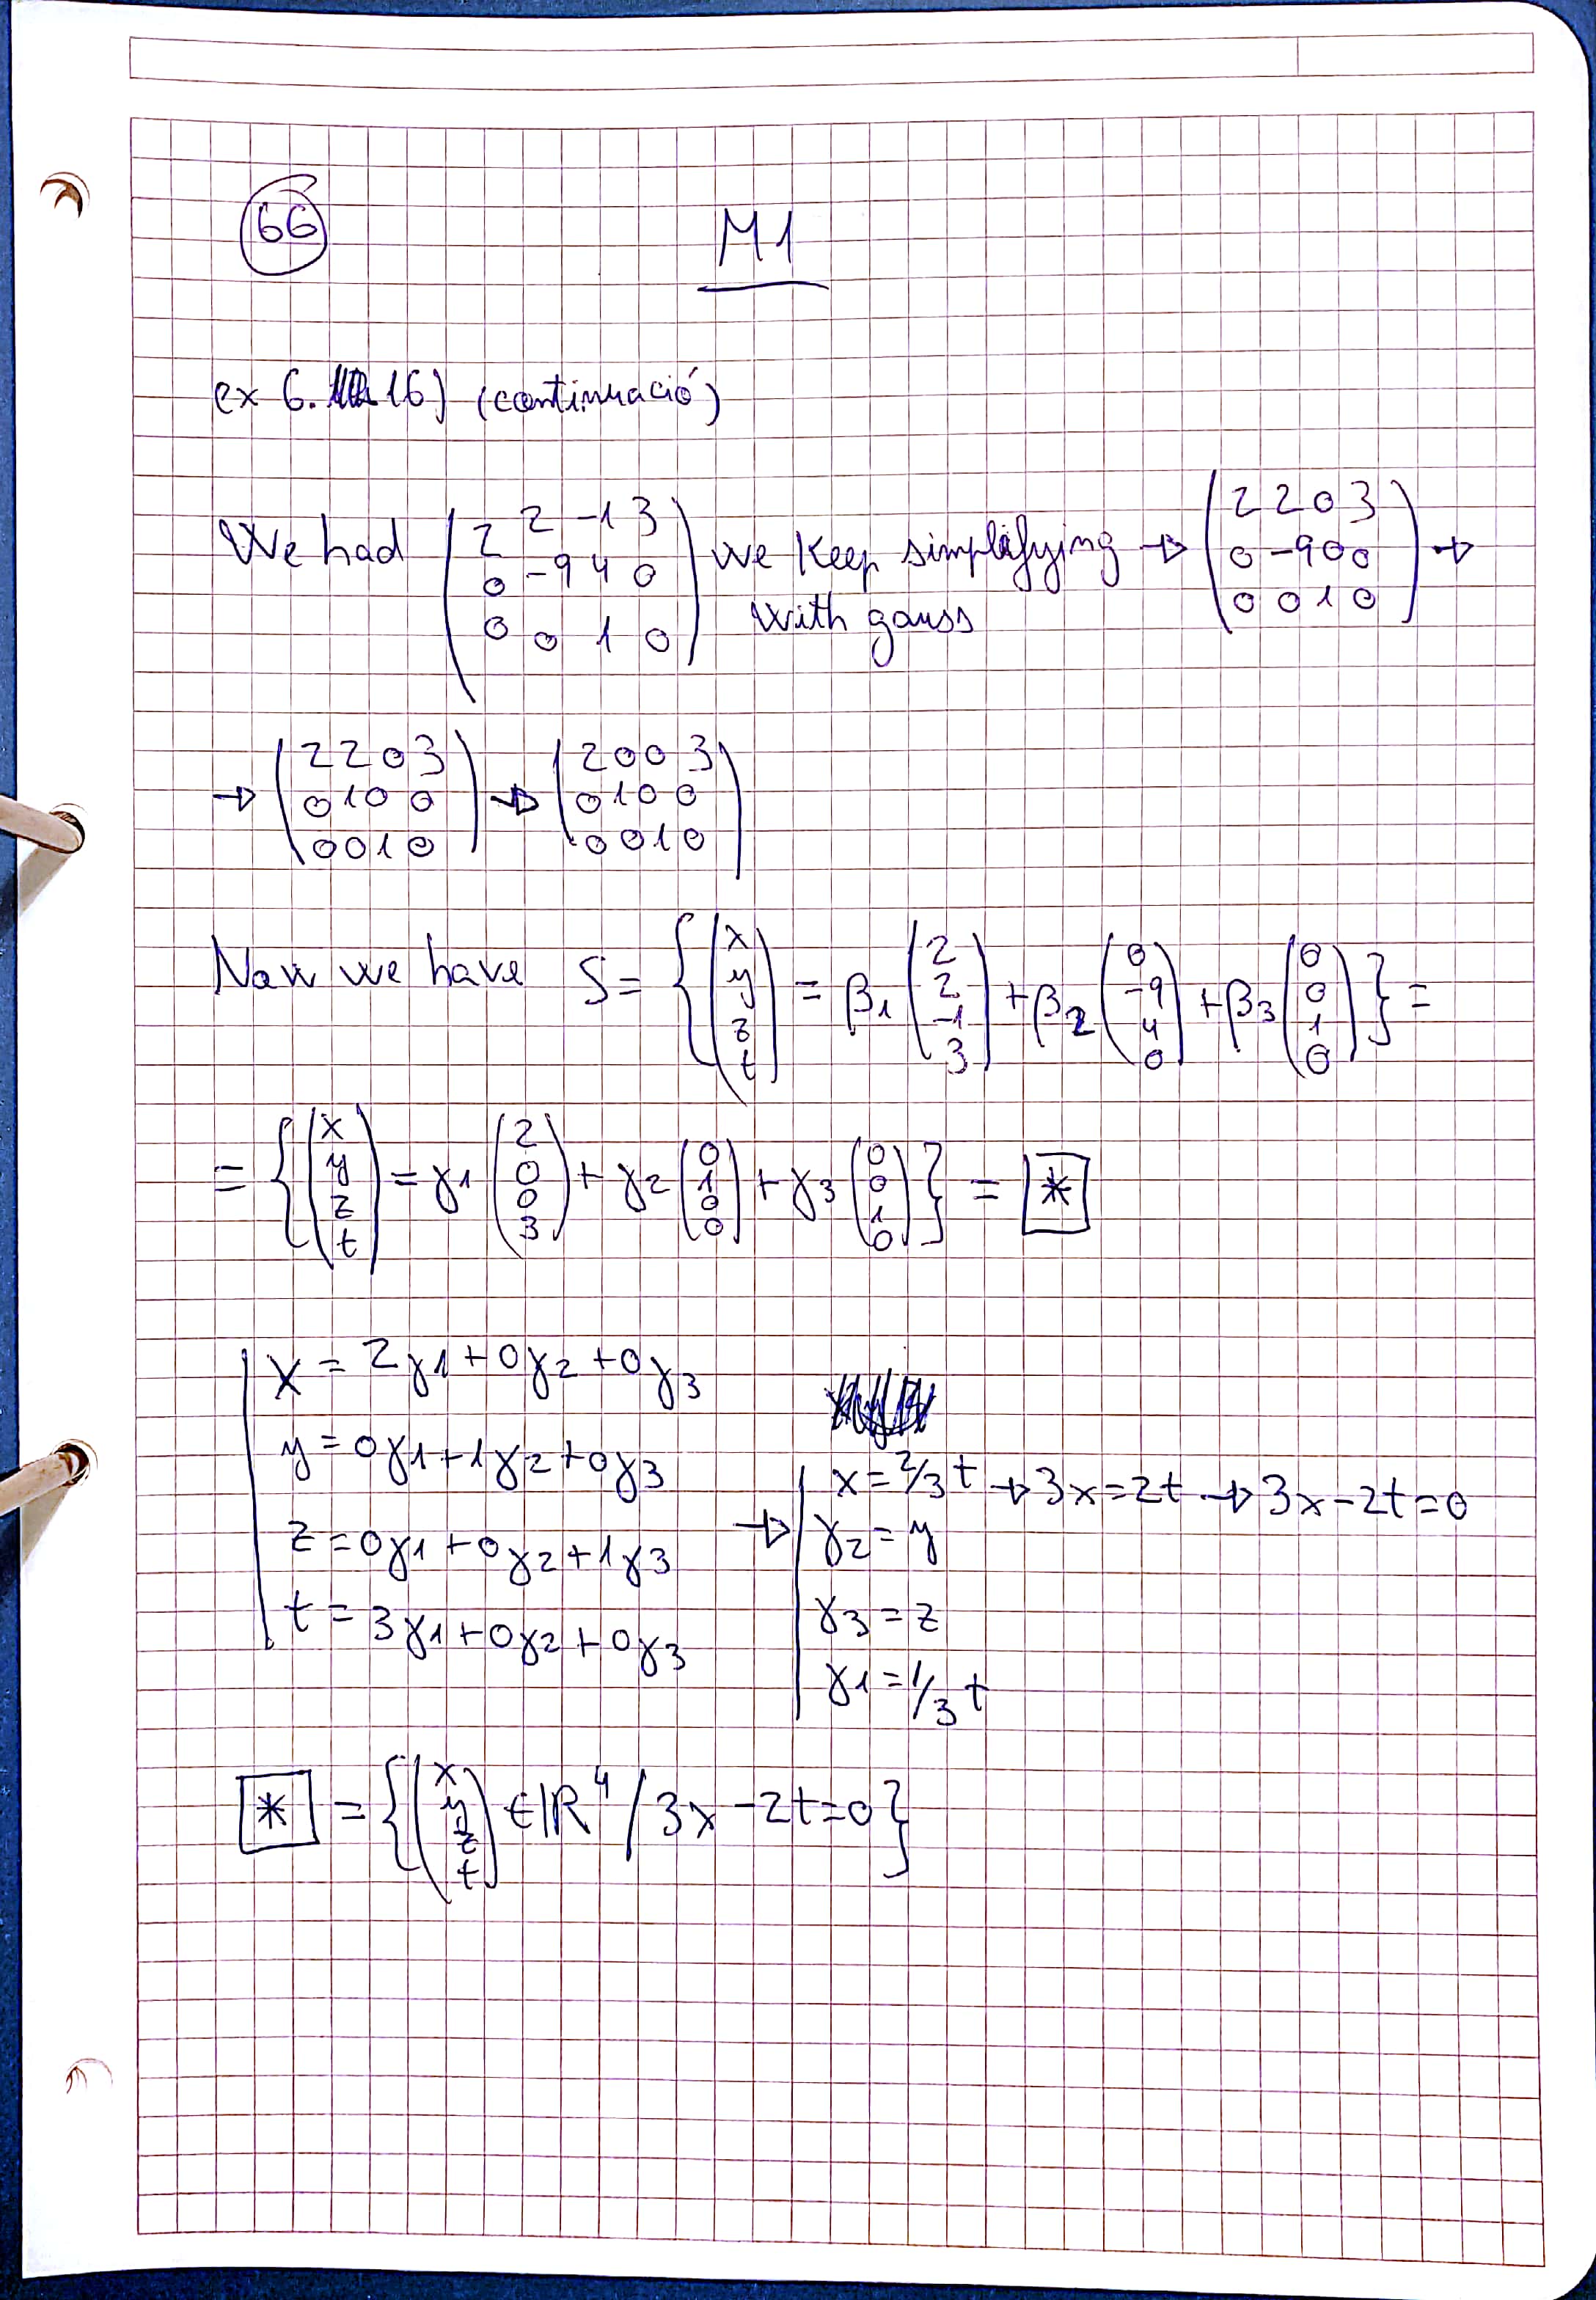 66
M1
ex 6. 16) (continuació)
We had (2 2 -1 3 / 0 -9 4 0 / 0 0 1 0) we keep simplifying with gauss → (2 2 0 3 / 0 -9 0 0 / 0 0 1 0) →
→ (2 2 0 3 / 0 1 0 0 / 0 0 1 0) → (2 0 0 3 / 0 1 0 0 / 0 0 1 0)
Now we have S = {(x y z t) = β1 (2 2 -1 3) + β2 (0 -9 4 0) + β3 (0 0 1 0)} =
= {(x y z t) = γ1 (2 0 0 3) + γ2 (0 1 0 0) + γ3 (0 0 1 0)} = *
x = 2γ1 + 0γ2 + 0γ3
y = 0γ1 + 1γ2 + 0γ3
z = 0γ1 + 0γ2 + 1γ3
t = 3γ1 + 0γ2 + 0γ3
→ x = 2/3 t → 3x = 2t → 3x - 2t = 0
γ2 = y
γ3 = z
γ1 = 1/3 t
* = {(x y z t) ∈ ℝ⁴ / 3x - 2t = 0}